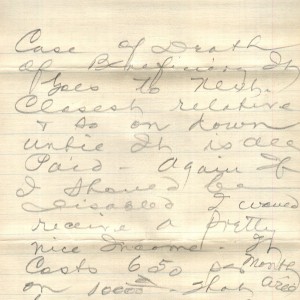 Case of Death
of Beneficiary It
goes to Next
Closest relative
& so on down
untie It is all
Paid - Again If
I Should be
Disabled I would
receive a Pretty
nice Income - It
Costs 6.50 per Month
on 10000 - that